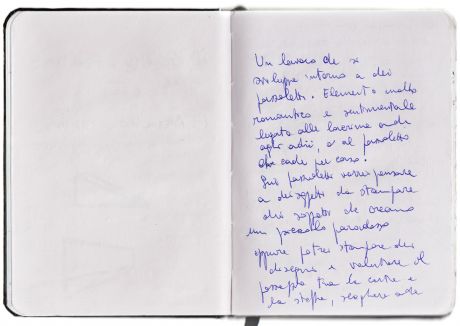 Un lavoro che si
sviluppa intorno a dei
fazzoletti. Elemento molto
romantico e sentimentale
legato alle lacrime
agli addii, o al fazzoletto
che cade per caso.
Sui fazzoletti vorrei pensare
a dei soggetti da stampare
dei soggetti che creano
un piccolo paradosso
oppure potrei stampare dei
disegni e valutare il
passaggio tra la carta e
la stoffa, scegliere